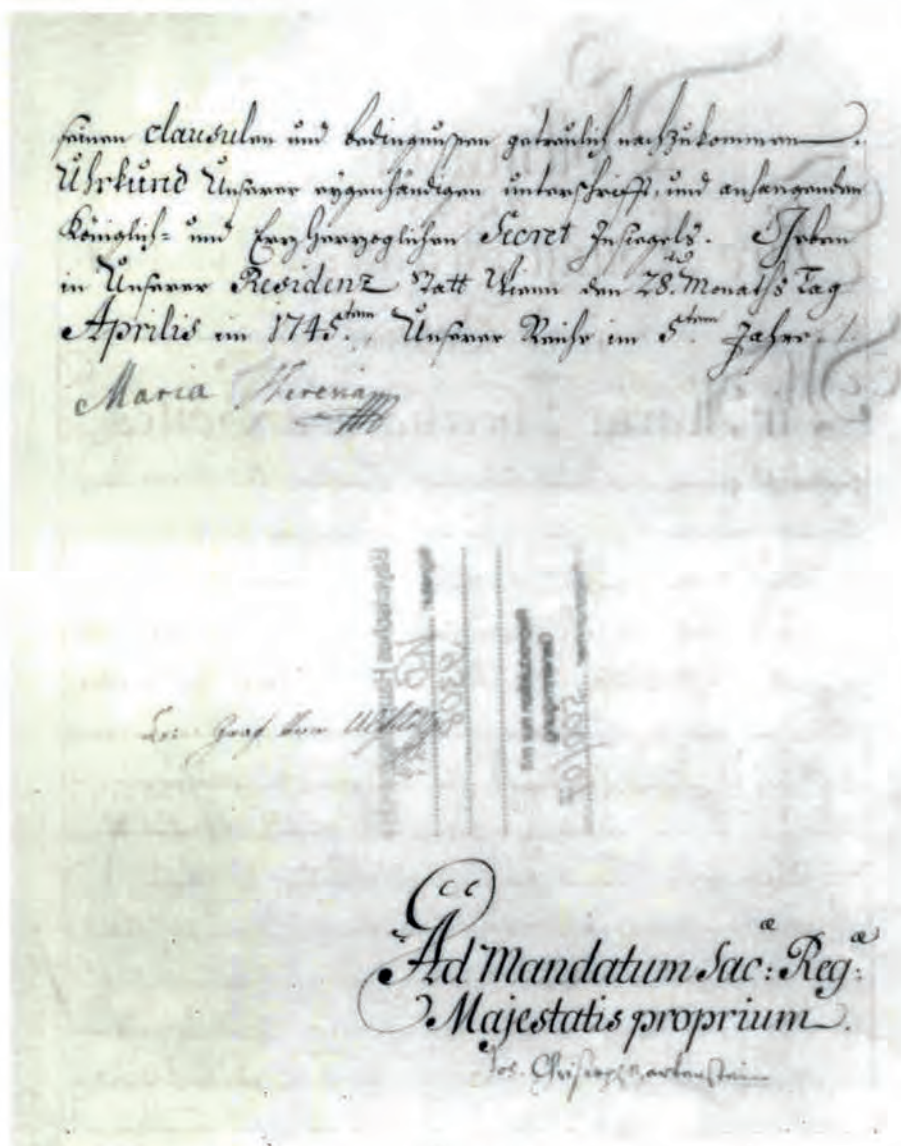 seinen clausulen und bedingnußen getreulich nachzukommen.
Uhrkund Unserer eygenhändigen unterschrifft, und anhangenden
Königlich- und Erzherzoglichen Secret Insiegels. Geben
in Unserer Residenz Statt Wienn den 28.ten Monaths Tag
Aprilis im 1745.ten, Unserer Reiche im 5.ten Jahre.
Maria Theresia
Graf von Uhlfeld
Ad Mandatum Sac:æ Reg:æ
Majestatis proprium.
Jos. Christoph Bartenstein